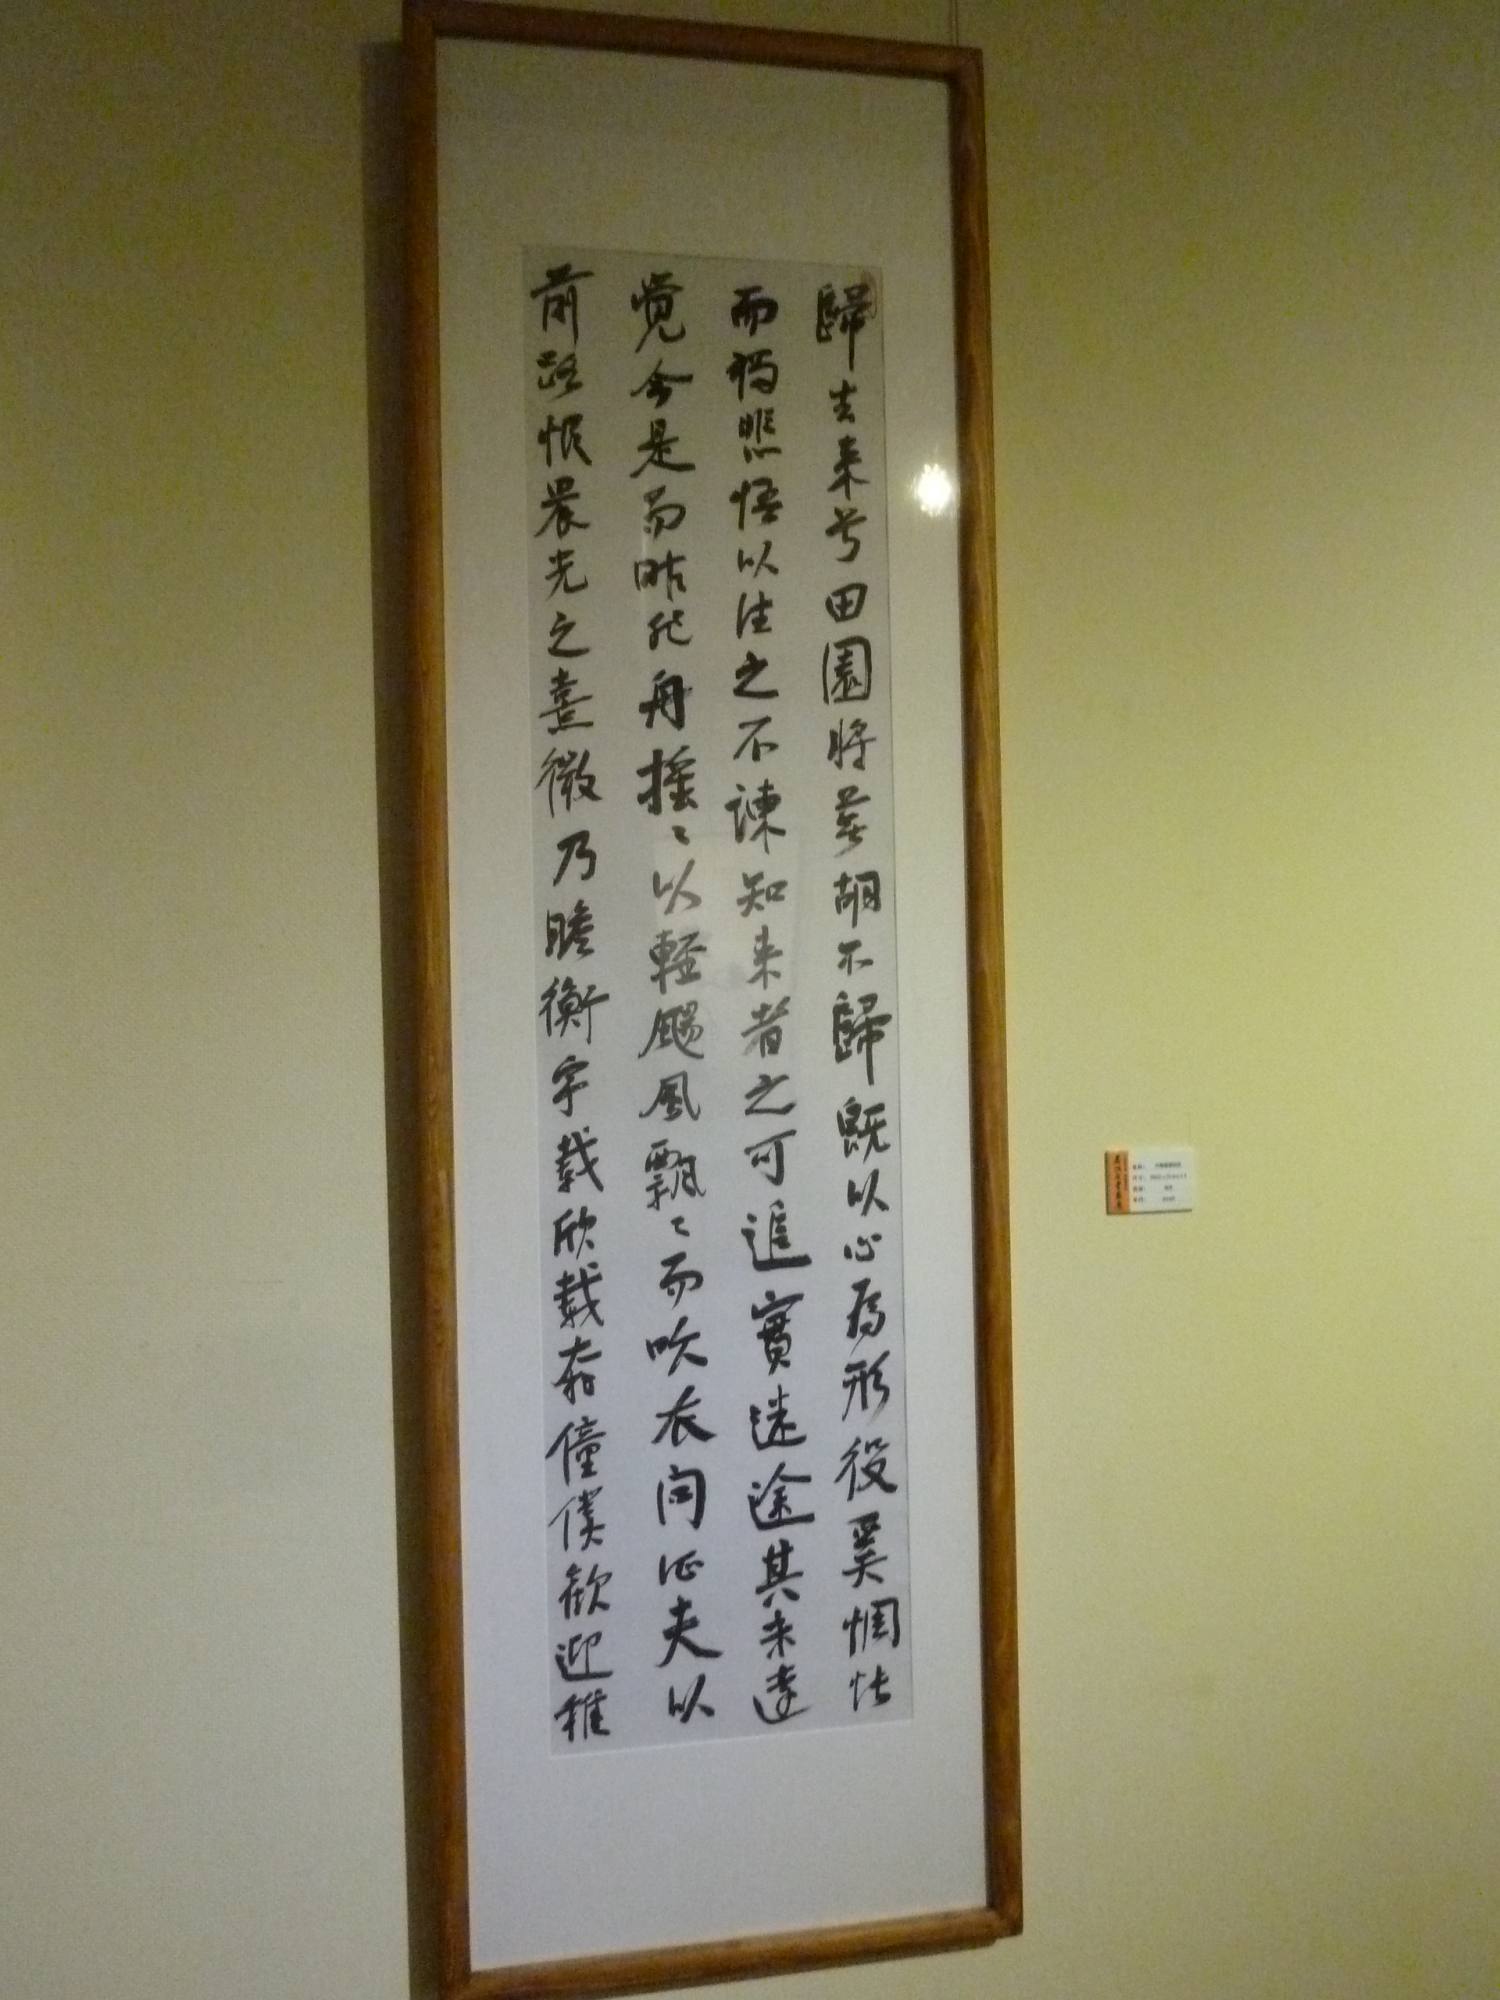 歸去来兮田園将蕪胡不歸既以心為形役奚惆怅
而獨悲悟以往之不諫知来者之可追實迷途其未遠
觉今是而昨非舟摇〻以輕颺風飄〻而吹衣问征夫以
前路恨晨光之熹微乃瞻衡宇載欣載奔僮僕歡迎稚